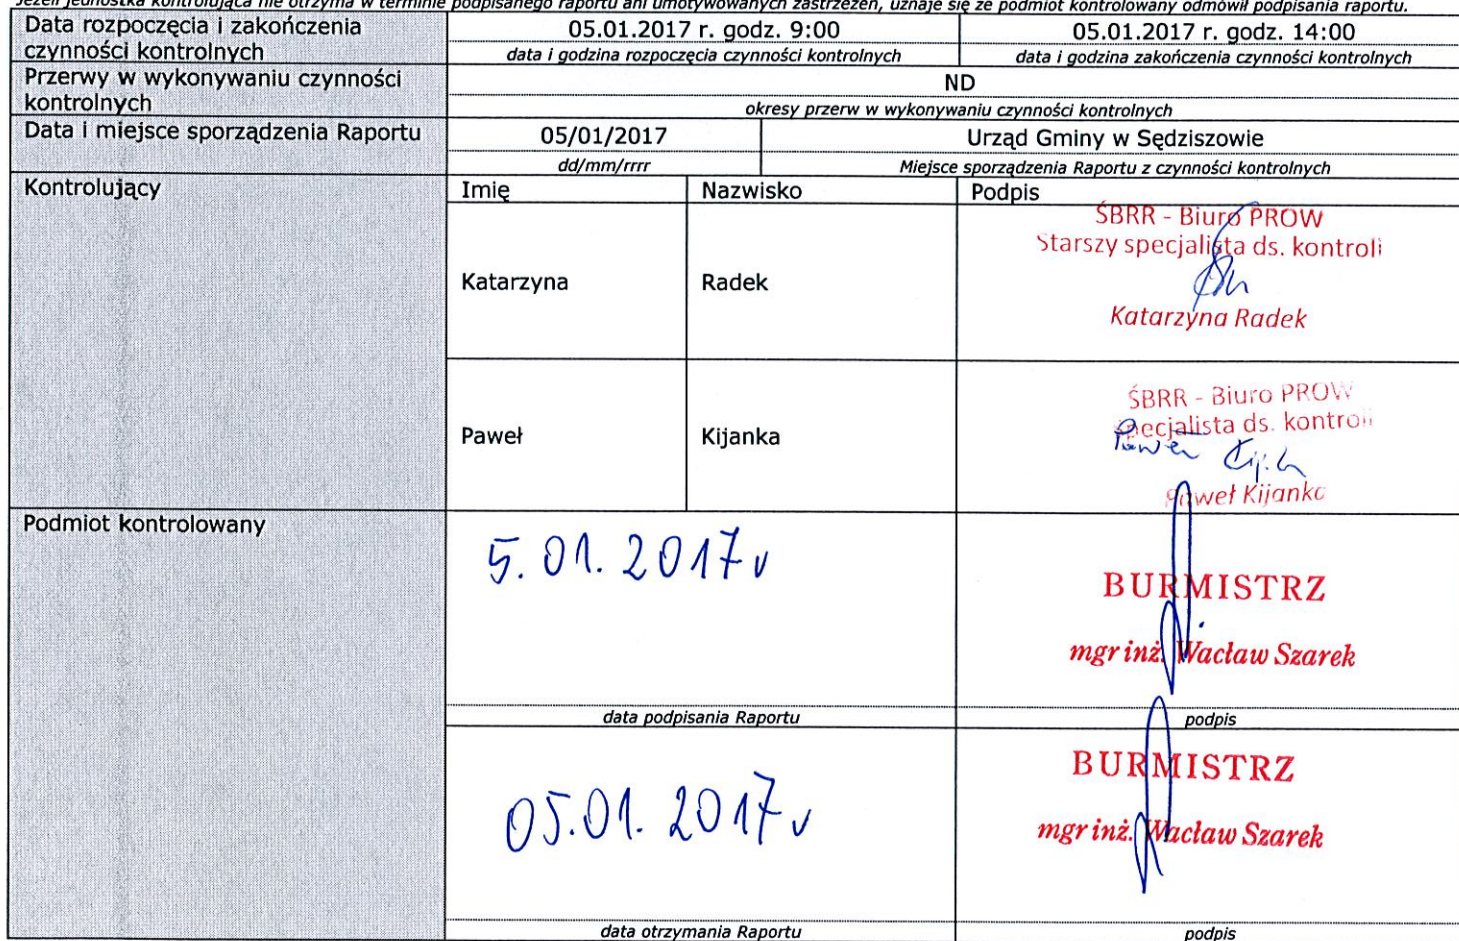 Jeżeli jednostka kontrolująca nie otrzyma w terminie podpisanego raportu ani umotywowanych zastrzeżeń, uznaje się że podmiot kontrolowany odmówił podpisania raportu.
Data rozpoczęcia i zakończenia
czynności kontrolnych
05.01.2017 r. godz. 9:00
data i godzina rozpoczęcia czynności kontrolnych
05.01.2017 r. godz. 14:00
data i godzina zakończenia czynności kontrolnych
Przerwy w wykonywaniu czynności
kontrolnych
ND
okresy przerw w wykonywaniu czynności kontrolnych
Data i miejsce sporządzenia Raportu
05/01/2017
dd/mm/rrrr
Urząd Gminy w Sędziszowie
Miejsce sporządzenia Raportu z czynności kontrolnych
Kontrolujący
Imię
Nazwisko
Podpis
Katarzyna
Radek
ŚBRR - Biuro PROW
Starszy specjalista ds. kontroli
Katarzyna Radek
Paweł
Kijanka
ŚBRR - Biuro PROW
specjalista ds. kontroli
Paweł Kijanka
Podmiot kontrolowany
5.01.2017r
data podpisania Raportu
BURMISTRZ
mgr inż. Wacław Szarek
podpis
05.01.2017r
data otrzymania Raportu
BURMISTRZ
mgr inż. Wacław Szarek
podpis